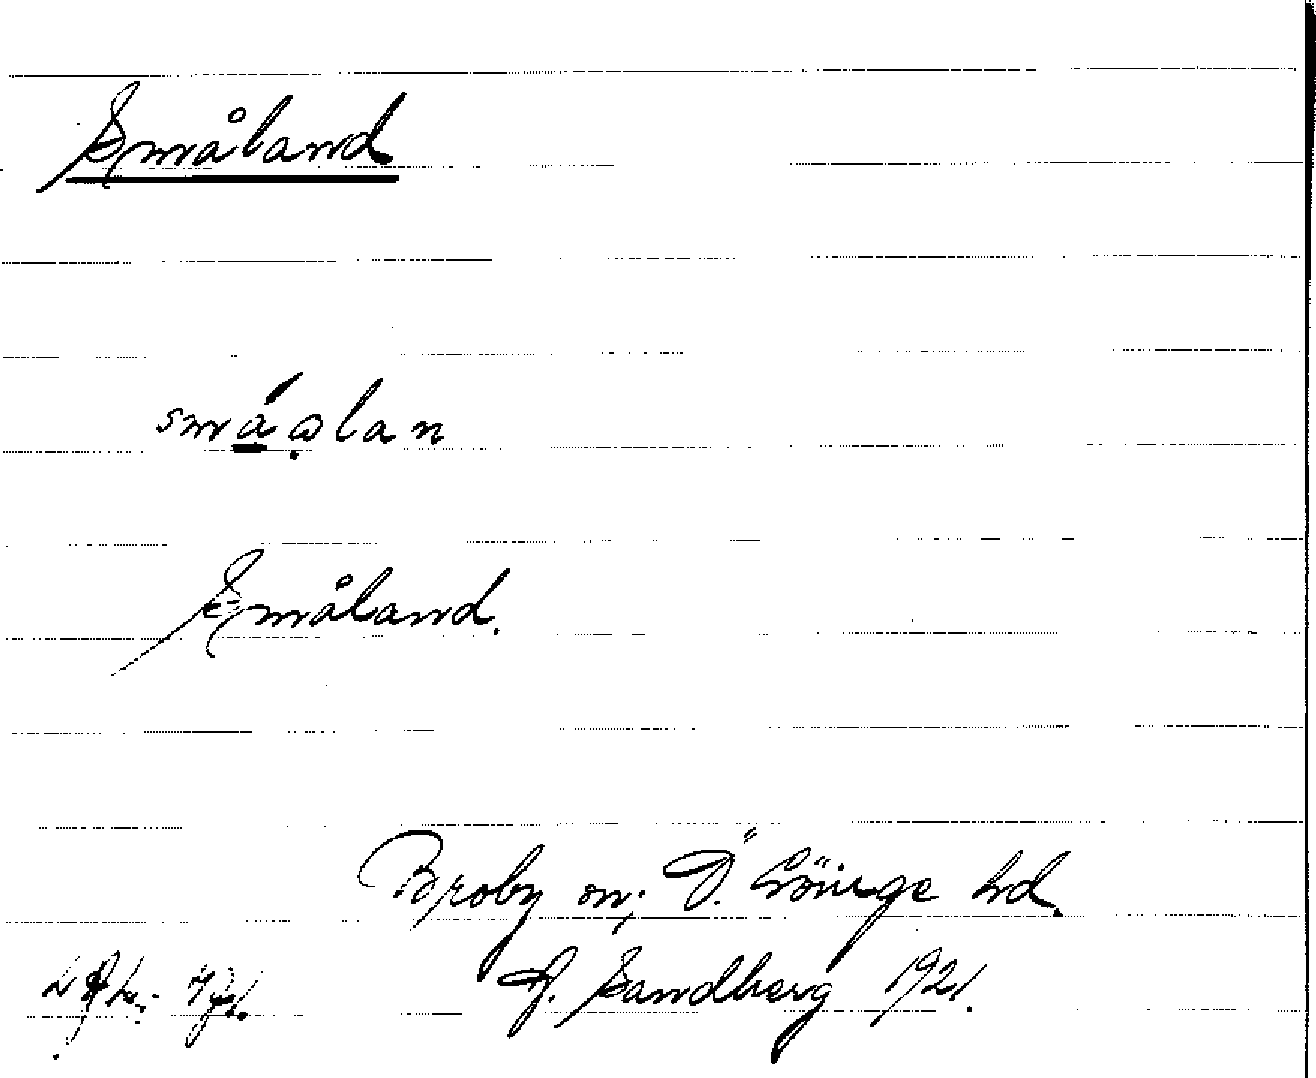 Småland
småₒlan
Småland.
Broby sn; Ö. Göinge hd.
Sandberg 1921.